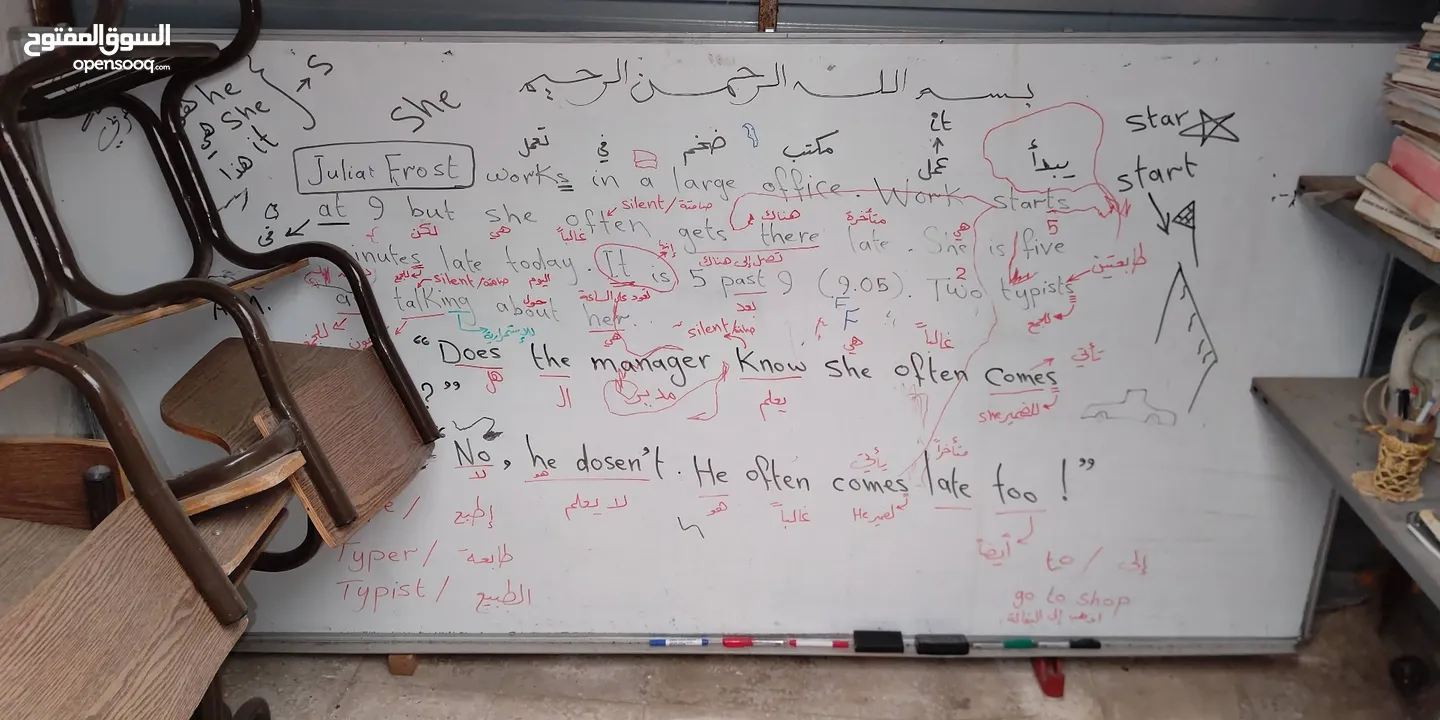 السوق المفتوح
opensooq.com
بسم الله الرحمن الرحيم
he
she
it
هي
هذا
S
She
star
start
تعمل في ضخم مكتب
it
عمل
يبدأ
Juliat Frost works in a large office. Work starts
silent / صامتة
هناك
متأخرة
هي
5
في
at 9 but she often gets there late. She is five
لكن هي غالباً
تصل إلى هناك
طابعتين
inutes late today. It is 5 past 9 (9.05). Two typists
للجمع
silent / صامتة
اليوم
تعود على الساعة
بعد
2
للجمع
talking about her.
حول
للإستمرارية
هي
silent / صامتة
F
F
هي
غالباً
تأتي
"Does the manager Know she often comes
هل
ال
مدير
يعلم
للضمير she
?"
No, he dosen't. He often comes late too!"
لا
هو
لا يعلم
هو
غالباً
يأتي
لضمير He
متأخراً
أيضاً
e / إطبع
Typer / طابعة
Typist / الطبيع
to / إلى
go to shop
اذهب إلى البقالة